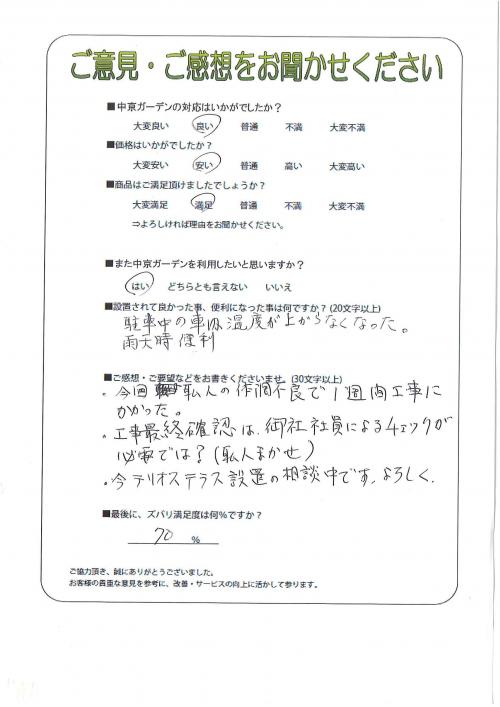 ご意見・ご感想をお聞かせください
■中京ガーデンの対応はいかがでしたか？
大変良い 良い 普通 不満 大変不満
■価格はいかがでしたか？
大変安い 安い 普通 高い 大変高い
■商品はご満足頂けましたでしょうか？
大変満足 満足 普通 不満 大変不満
⇒よろしければ理由をお聞かせください。
■また中京ガーデンを利用したいと思いますか？
はい どちらとも言えない いいえ
■設置されて良かった事、便利になった事は何ですか？(20文字以上)
駐車中の車内温度が上がらなくなった。
雨天時便利
■ご感想・ご要望などをお書きくださいませ。(30文字以上)
・今回 職人の体調不良で1週間工事に
かかった。
・工事最終確認は、御社社員によるチェックが
必要では？(職人まかせ)
・今テリオステラス設置の相談中です。よろしく.
■最後に、ズバリ満足度は何%ですか？
70 %
ご協力頂き、誠にありがとうございました。
お客様の貴重な意見を参考に、改善・サービスの向上に活かして参ります。